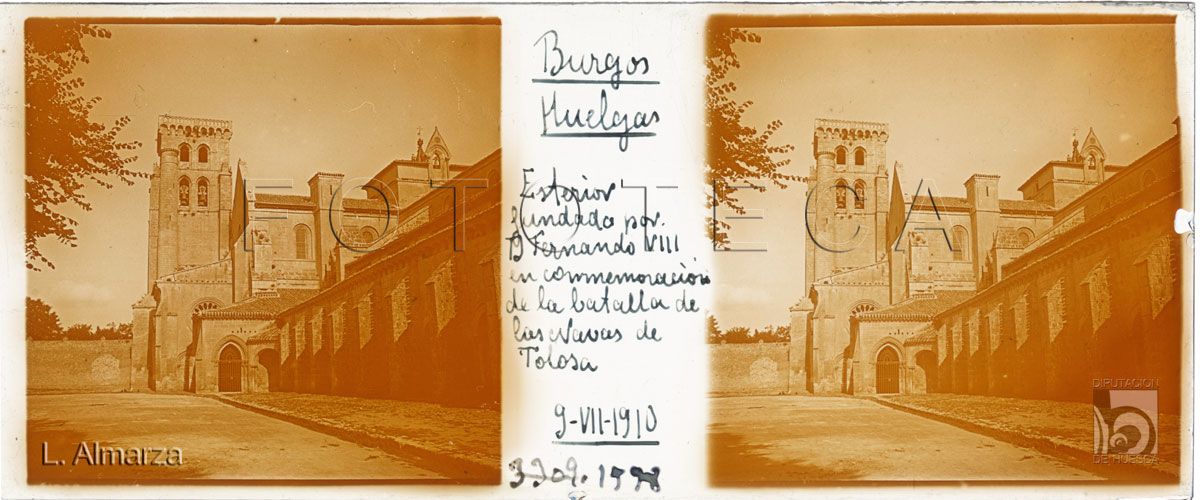 Burgos
Huelgas
Esterior
fundado por
D Fernando VIII
en conmemoración
de la batalla de
las Navas de
Tolosa
9-VII-1910
FOTOTECA
L. Almarza
DIPUTACION
DE HUESCA